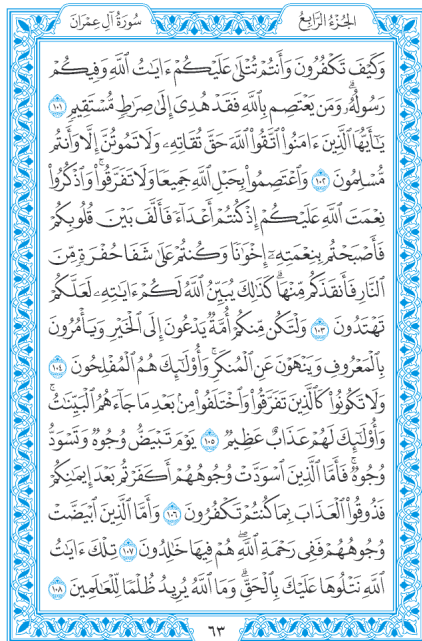 الجُزْءُ الرَّابِعُ
سُورَةُ آلِ عِمْرَان
وَكَيْفَ تَكْفُرُونَ وَأَنتُمْ تُتْلَىٰ عَلَيْكُمْ ءَايَـٰتُ ٱللَّهِ وَفِيكُمْ
رَسُولُهُۥۗ وَمَن يَعْتَصِم بِٱللَّهِ فَقَدْ هُدِىَ إِلَىٰ صِرَٰطٍ مُّسْتَقِيمٍ ١٠١
يَـٰٓأَيُّهَا ٱلَّذِينَ ءَامَنُوا۟ ٱتَّقُوا۟ ٱللَّهَ حَقَّ تُقَاتِهِۦ وَلَا تَمُوتُنَّ إِلَّا وَأَنتُم
مُّسْلِمُونَ ١٠٢ وَٱعْتَصِمُوا۟ بِحَبْلِ ٱللَّهِ جَمِيعًا وَلَا تَفَرَّقُوا۟ۚ وَٱذْكُرُوا۟
نِعْمَتَ ٱللَّهِ عَلَيْكُمْ إِذْ كُنتُمْ أَعْدَآءً فَأَلَّفَ بَيْنَ قُلُوبِكُمْ
فَأَصْبَحْتُم بِنِعْمَتِهِۦٓ إِخْوَٰنًا وَكُنتُمْ عَلَىٰ شَفَا حُفْرَةٍ مِّنَ
ٱلنَّارِ فَأَنقَذَكُم مِّنْهَاۗ كَذَٰلِكَ يُبَيِّنُ ٱللَّهُ لَكُمْ ءَايَـٰتِهِۦ لَعَلَّكُمْ
تَهْتَدُونَ ١٠٣ وَلْتَكُن مِّنكُمْ أُمَّةٌ يَدْعُونَ إِلَى ٱلْخَيْرِ وَيَأْمُرُونَ
بِٱلْمَعْرُوفِ وَيَنْهَوْنَ عَنِ ٱلْمُنكَرِۚ وَأُو۟لَـٰٓئِكَ هُمُ ٱلْمُفْلِحُونَ ١٠٤
وَلَا تَكُونُوا۟ كَٱلَّذِينَ تَفَرَّقُوا۟ وَٱخْتَلَفُوا۟ مِنۢ بَعْدِ مَا جَآءَهُمُ ٱلْبَيِّنَـٰتُۚ
وَأُو۟لَـٰٓئِكَ لَهُمْ عَذَابٌ عَظِيمٌ ١٠٥ يَوْمَ تَبْيَضُّ وُجُوهٌ وَتَسْوَدُّ
وُجُوهٌۚ فَأَمَّا ٱلَّذِينَ ٱسْوَدَّتْ وُجُوهُهُمْ أَكَفَرْتُم بَعْدَ إِيمَـٰنِكُمْ
فَذُوقُوا۟ ٱلْعَذَابَ بِمَا كُنتُمْ تَكْفُرُونَ ١٠٦ وَأَمَّا ٱلَّذِينَ ٱبْيَضَّتْ
وُجُوهُهُمْ فَفِى رَحْمَةِ ٱللَّهِۖ هُمْ فِيهَا خَـٰلِدُونَ ١٠٧ تِلْكَ ءَايَـٰتُ
ٱللَّهِ نَتْلُوهَا عَلَيْكَ بِٱلْحَقِّۗ وَمَا ٱللَّهُ يُرِيدُ ظُلْمًا لِّلْعَـٰلَمِينَ ١٠٨
٦٣